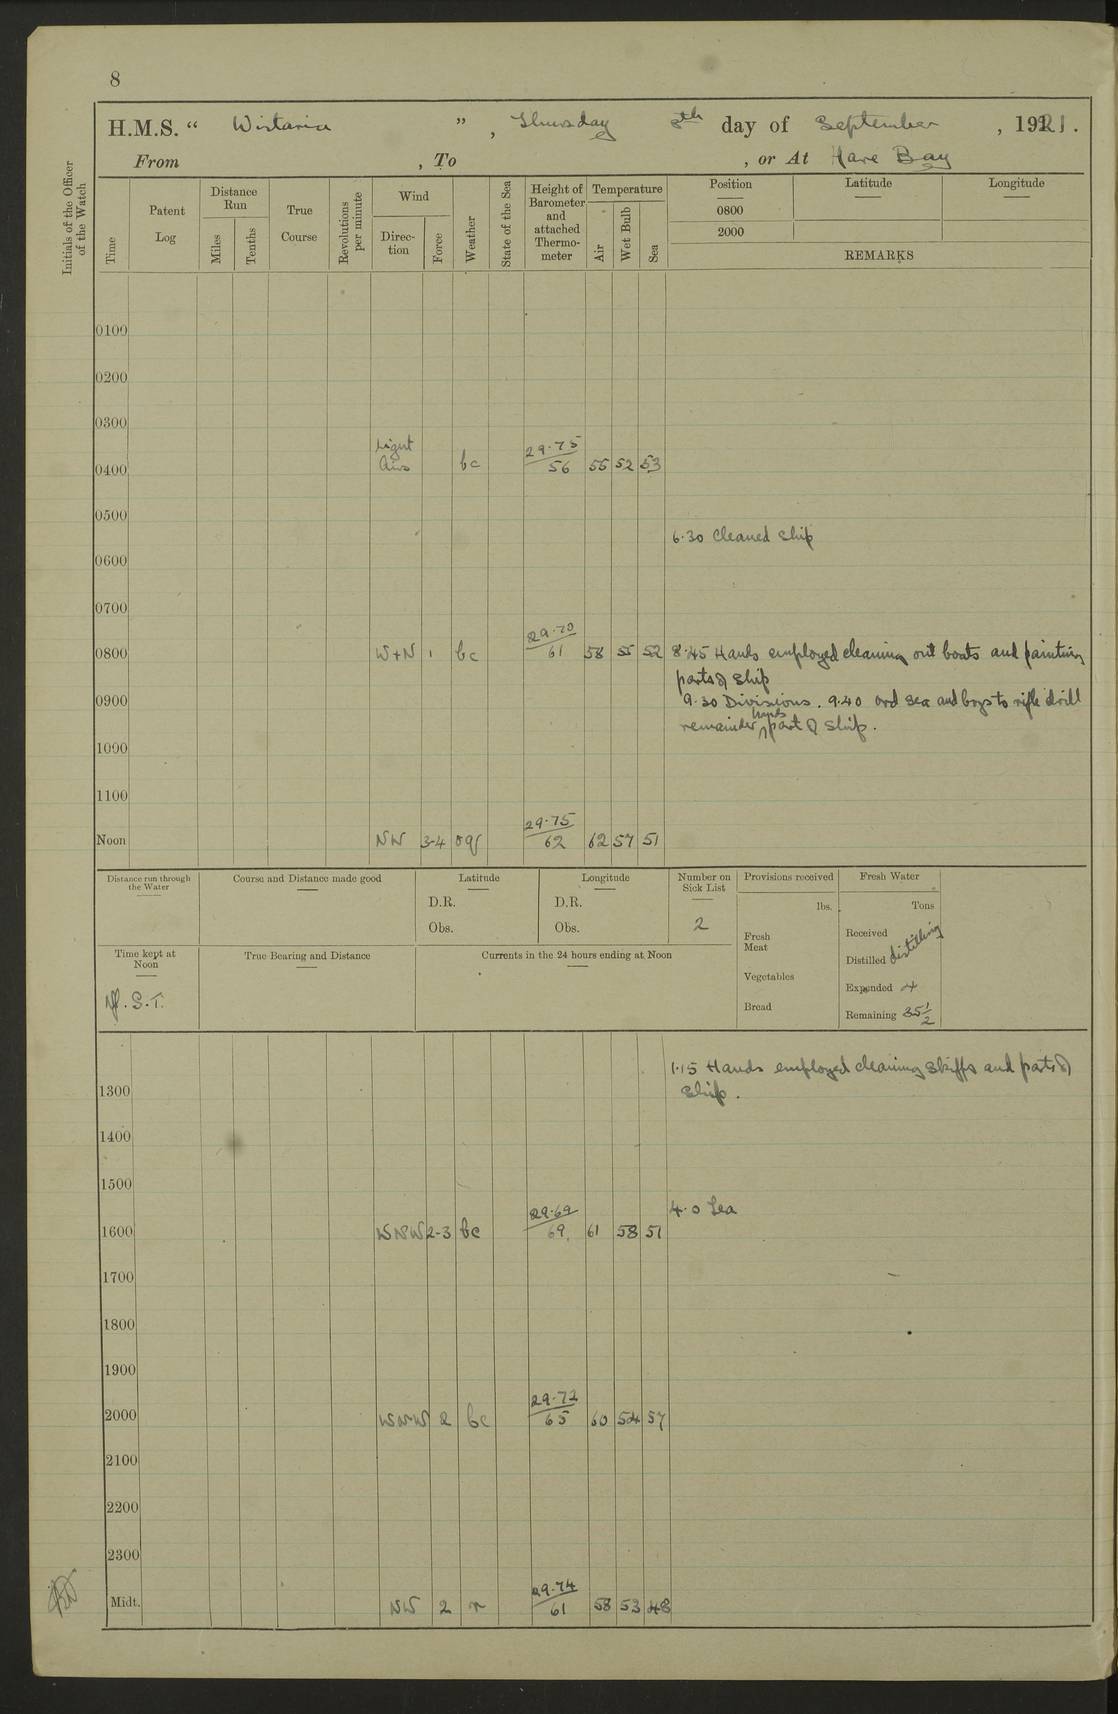 8
H.M.S. “ Wistaria ” , Thursday 8th day of September , 1921 .
From , To , or At Hare Bay
Initials of the Officer
of the Watch
Time
Patent
Log
Distance
Run
Miles
Tenths
True
Course
Revolutions
per minute
Wind
Direc-
tion
Force
Weather
State of the Sea
Height of
Barometer
and
attached
Thermo-
meter
Temperature
Air
Wet Bulb
Sea
Position Latitude Longitude
0800
2000
REMARKS
0100
0200
0300
Light 29.75
0400 Airs bc 56 55 52 53
0500
6.30 Cleaned Ship
0600
0700
29.70
0800 W+N 1 bc 61 58 55 52 8.45 Hands employed cleaning out boats and painting
parts of Ship
0900 9.30 Divisions . 9.40 ord sea and boys to rifle drill
hands
remainder part of Ship .
1000
1100
29.75
Noon NW 3-4 oq 62 62 57 51
Distance run through
the Water
Course and Distance made good
Latitude
D.R.
Obs.
Longitude
D.R.
Obs.
Number on
Sick List
2
Provisions received
lbs.
Fresh
Meat
Vegetables
Bread
Fresh Water
Tons
Received
Distilled distilling
Expended 4
Remaining 35 1/2
Time kept at
Noon
Nf. S.T.
True Bearing and Distance
Currents in the 24 hours ending at Noon
1.15 Hands employed cleaning Skiffs and parts of
1300 Ship .
1400
1500
29.69 4.0 Tea
1600 WNW 2-3 bc 69 61 58 51
1700
1800
1900
29.72
2000 WNW 2 bc 65 60 54 57
2100
2200
2300
29.74
Midt. NW 2 r 61 58 53 48